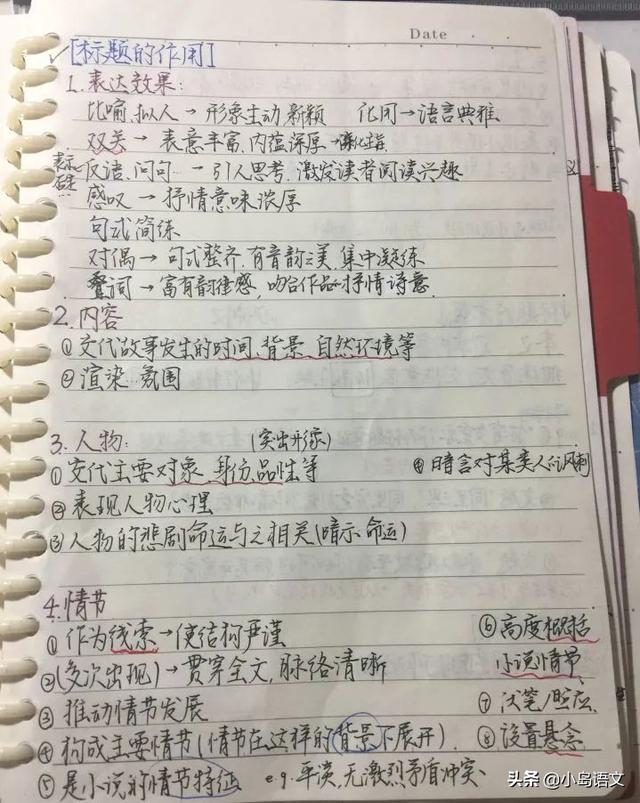 Date
[标题的作用]
1.表达效果:
比喻.拟人→形象生动.新颖 化用→语言典雅
双关→表意丰富.内蕴深厚→
反语.问句→引人思考.激发读者阅读兴趣
感叹→抒情意味浓厚
句式简练
对偶→句式整齐,有音韵之美,集中凝练
叠词→富有韵律感,吻合作品的抒情诗意.
2.内容
①交代故事发生的时间.背景.自然环境等
②渲染..氛围
3.人物: (突出形象)
①交代主要对象.身份.品性等 ④暗含对某类人的讽刺
②表现人物心理
③人物的悲剧命运与之相关(暗示.命运)
4.情节
①作为线索→使结构严谨 ⑥高度概括
②(多次出现)→贯穿全文,脉络清晰 小说情节
③推动情节发展 ⑦伏笔/照应
④构成主要情节(情节在这样的背景下展开) ⑧设置悬念
⑤是小说的情节特征 e.g.平淡,无激烈矛盾冲突
头条@小岛语文